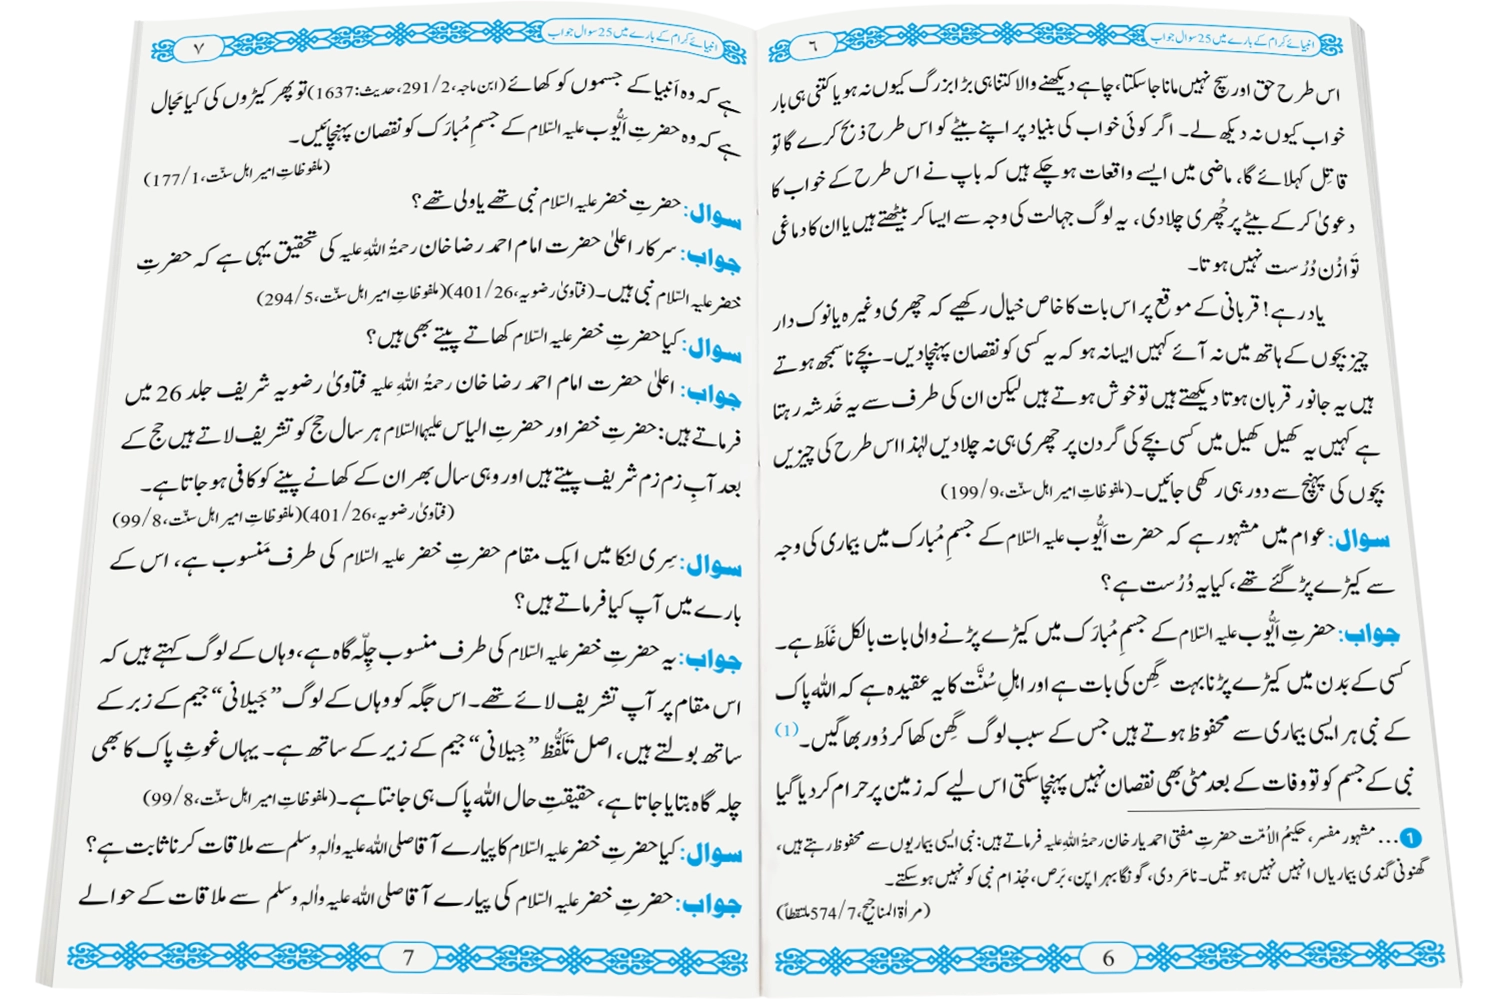 انبیائے کرام کے بارے میں 25 سوال جواب
٦
اس طرح حق اور سچ نہیں مانا جا سکتا، چاہے دیکھنے والا کتنا ہی بڑا بزرگ کیوں نہ ہو یا کتنی ہی بار
خواب کیوں نہ دیکھ لے۔ اگر کوئی خواب کی بنیاد پر اپنے بیٹے کو اس طرح ذبح کرے گا تو
قاتِل کہلائے گا، ماضی میں ایسے واقعات ہو چکے ہیں کہ باپ نے اس طرح کے خواب کا
دعویٰ کر کے بیٹے پر چُھری چلا دی، یہ لوگ جہالت کی وجہ سے ایسا کر بیٹھتے ہیں یا ان کا دماغی
تَوازُن دُرُست نہیں ہوتا۔
یاد رہے! قربانی کے موقع پر اس بات کا خاص خیال رکھیے کہ چھری وغیرہ یا نوک دار
چیز بچوں کے ہاتھ میں نہ آئے کہیں ایسا نہ ہو کہ یہ کسی کو نقصان پہنچا دیں۔ بچے نا سمجھ ہوتے
ہیں یہ جانور قربان ہوتا دیکھتے ہیں تو خوش ہوتے ہیں لیکن ان کی طرف سے یہ خَدشہ رہتا
ہے کہیں یہ کھیل کھیل میں کسی بچے کی گردن پر چھری ہی نہ چلا دیں لہٰذا اس طرح کی چیزیں
بچوں کی پہنچ سے دور ہی رکھی جائیں۔ (ملفوظاتِ امیر اہل سنّت، 9/199)
سوال: عوام میں مشہور ہے کہ حضرت اَیُّوب علیہ السّلام کے جسمِ مُبارک میں بیماری کی وجہ
سے کیڑے پڑ گئے تھے، کیا یہ دُرُست ہے؟
جواب: حضرتِ اَیُّوب علیہ السّلام کے جسمِ مُبارَک میں کیڑے پڑنے والی بات بالکل غَلَط ہے۔
کسی کے بَدن میں کیڑے پڑنا بہت گِھن کی بات ہے اور اہلِ سُنَّت کا یہ عقیدہ ہے کہ اللہ پاک
کے نبی ہر ایسی بیماری سے محفوظ ہوتے ہیں جس کے سبب لوگ گِھن کھا کر دُور بھاگیں۔ (1)
نبی کے جسم کو تو وفات کے بعد مٹی بھی نقصان نہیں پہنچا سکتی اس لیے کہ زمین پر حرام کر دیا گیا
1… مشہور مفسر، حکیمُ الاُمّت حضرتِ مفتی احمد یار خان رحمۃُ اللہِ علیہ فرماتے ہیں: نبی ایسی بیماریوں سے محفوظ رہتے ہیں،
گھنونی گندی بیماریاں انہیں نہیں ہوتیں۔ نامَردی، گونگا بہرا پن، بَرص، جُذام نبی کو نہیں ہو سکتے۔
(مراٰۃ المناجیح، 7/574 ملتقطاً)
6
انبیائے کرام کے بارے میں 25 سوال جواب
٧
ہے کہ وہ اَنبیا کے جسموں کو کھائے (ابن ماجہ، 2/291، حدیث: 1637) تو پھر کیڑوں کی کیا مَجال
ہے کہ وہ حضرتِ اَیُّوب علیہ السّلام کے جسمِ مُبارَک کو نقصان پہنچائیں۔
(ملفوظاتِ امیر اہل سنّت، 1/177)
سوال: حضرتِ خضر علیہ السّلام نبی تھے یا ولی تھے؟
جواب: سرکارِ اعلیٰ حضرت امام احمد رضا خان رحمۃُ اللہِ علیہ کی تحقیق یہی ہے کہ حضرتِ
خضر علیہ السّلام نبی ہیں۔ (فتاویٰ رضویہ، 26/401) (ملفوظاتِ امیر اہل سنّت، 5/294)
سوال: کیا حضرتِ خضر علیہ السّلام کھاتے پیتے بھی ہیں؟
جواب: اعلیٰ حضرت امام احمد رضا خان رحمۃُ اللہِ علیہ فتاویٰ رضویہ شریف جلد 26 میں
فرماتے ہیں: حضرتِ خضر اور حضرتِ الیاس علیہما السّلام ہر سال حج کو تشریف لاتے ہیں حج کے
بعد آبِ زم زم شریف پیتے ہیں اور وہی سال بھر ان کے کھانے پینے کو کافی ہو جاتا ہے۔
(فتاویٰ رضویہ، 26/401) (ملفوظاتِ امیر اہل سنّت، 8/99)
سوال: سِری لنکا میں ایک مقام حضرتِ خضر علیہ السّلام کی طرف مَنسوب ہے، اس کے
بارے میں آپ کیا فرماتے ہیں؟
جواب: یہ حضرتِ خضر علیہ السّلام کی طرف منسوب چِلّہ گاہ ہے، وہاں کے لوگ کہتے ہیں کہ
اس مقام پر آپ تشریف لائے تھے۔ اس جگہ کو وہاں کے لوگ ”جَیلانی“ جیم کے زبر کے
ساتھ بولتے ہیں، اصل تَلَفُّظ ”جِیلانی“ جیم کے زیر کے ساتھ ہے۔ یہاں غوثِ پاک کا بھی
چلہ گاہ بتایا جاتا ہے، حقیقتِ حال اللہ پاک ہی جانتا ہے۔ (ملفوظاتِ امیر اہل سنّت، 8/99)
سوال: کیا حضرتِ خضر علیہ السّلام کا پیارے آقا صلی اللہ علیہ والہٖ وسلم سے ملاقات کرنا ثابت ہے؟
جواب: حضرتِ خضر علیہ السّلام کی پیارے آقا صلی اللہ علیہ والہٖ وسلم سے ملاقات کے حوالے
7